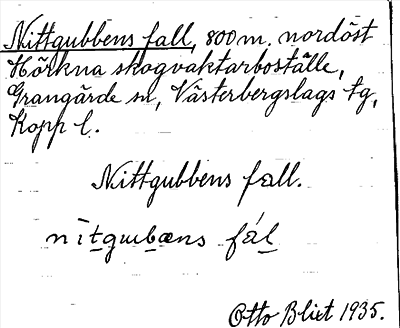 Nittgubbens fall, 800 m. nordöst
Hörkna skogvaktarboställe,
Grangärde sn, Västerbergslags tg,
Kopp l.
Nittgubbens fall.
nìtgubæns fál
Otto Blixt 1935.